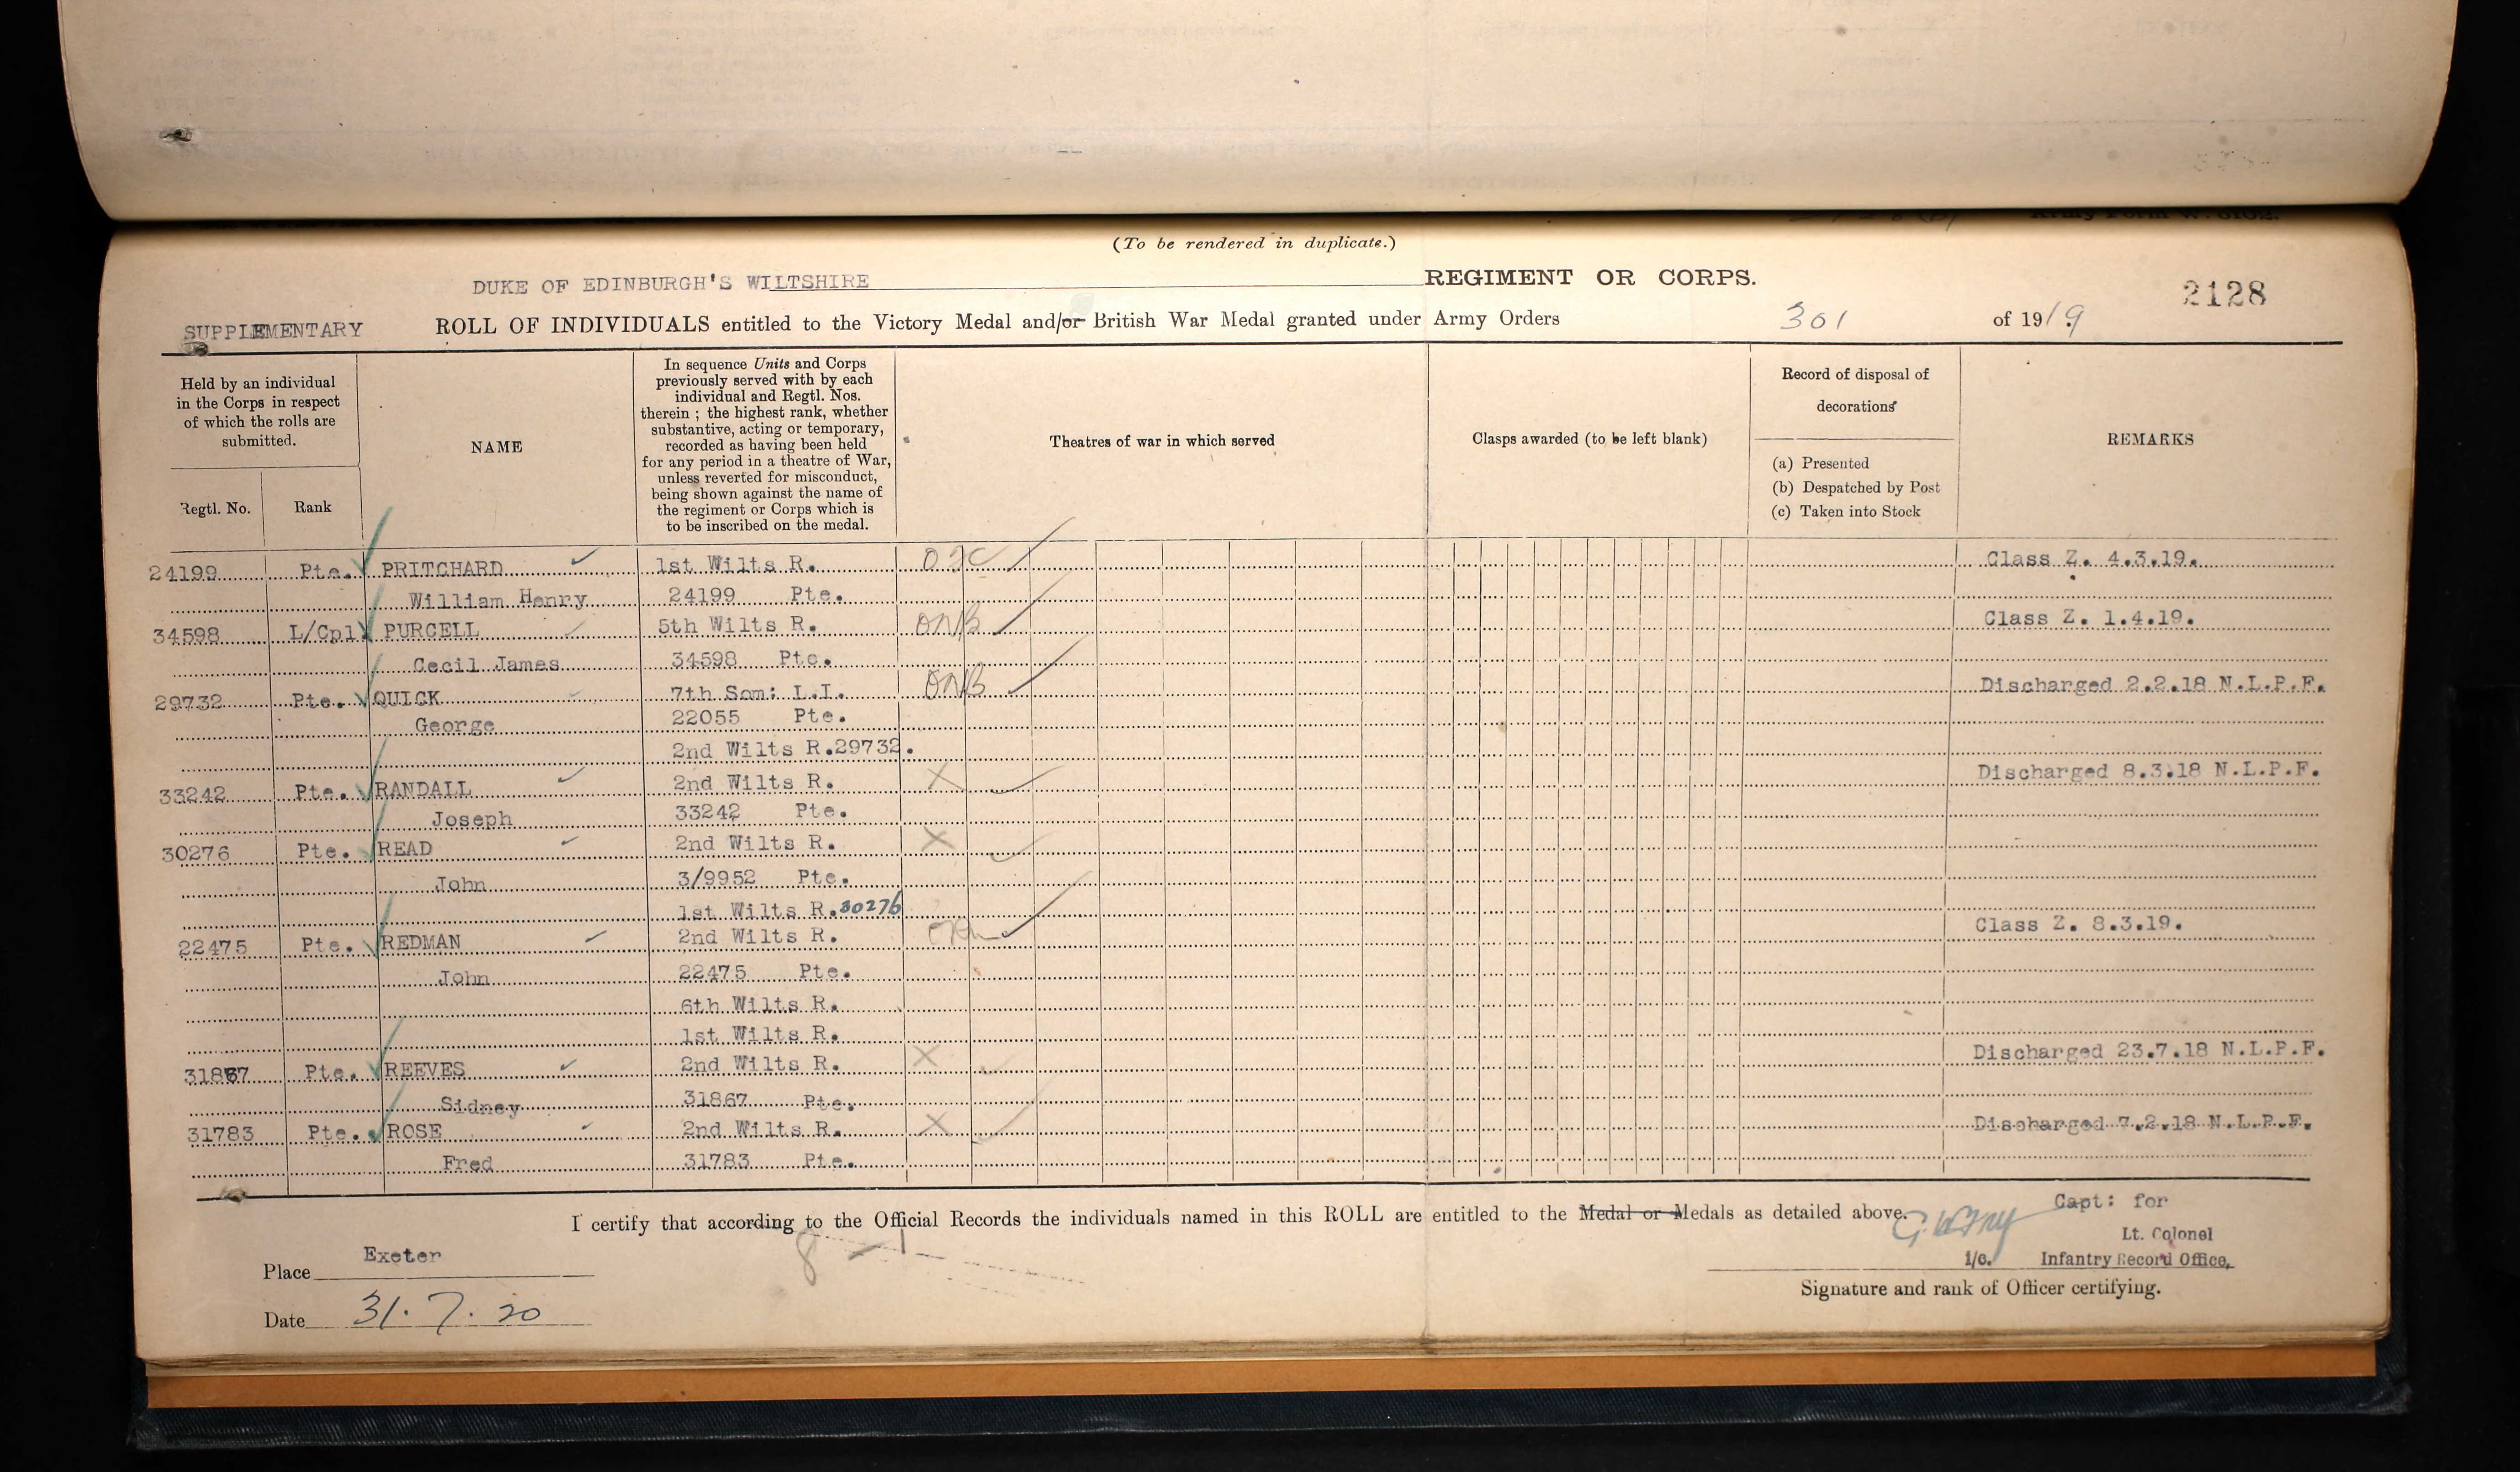 (To be rendered in duplicate.)
DUKE OF EDINBURGH'S WILTSHIRE REGIMENT OR CORPS.
2128
SUPPLEMENTARY ROLL OF INDIVIDUALS entitled to the Victory Medal and/or British War Medal granted under Army Orders 301 of 1919.
Held by an individual
in the Corps in respect
of which the rolls are
submitted.
Regtl. No.
Rank
NAME
In sequence Units and Corps
previously served with by each
individual and Regtl. Nos.
therein ; the highest rank, whether
substantive, acting or temporary,
recorded as having been held
for any period in a theatre of War,
unless reverted for misconduct,
being shown against the name of
the regiment or Corps which is
to be inscribed on the medal.
Theatres of war in which served
Clasps awarded (to be left blank)
Record of disposal of
decorations
(a) Presented
(b) Despatched by Post
(c) Taken into Stock
REMARKS
24199 Pte. PRITCHARD 1st Wilts R. Class Z. 4.3.19.
William Henry 24199 Pte.
34598 L/Cpl PURCELL 5th Wilts R. Class Z. 1.4.19.
Cecil James 34598 Pte.
29732 Pte. QUICK 7th Som: L.I. Discharged 2.2.18 N.L.P.F.
George 22055 Pte.
2nd Wilts R.29732.
33242 Pte. RANDALL 2nd Wilts R. X Discharged 8.3.18 N.L.P.F.
Joseph 33242 Pte.
30276 Pte. READ 2nd Wilts R. X
John 3/9952 Pte.
1st Wilts R.30276
22475 Pte. REDMAN 2nd Wilts R. Class Z. 8.3.19.
John 22475 Pte.
6th Wilts R.
1st Wilts R.
31867 Pte. REEVES 2nd Wilts R. X Discharged 23.7.18 N.L.P.F.
Sidney 31867 Pte.
31783 Pte. ROSE 2nd Wilts R. X Discharged 7.2.18 N.L.P.F.
Fred 31783 Pte.
I certify that according to the Official Records the individuals named in this ROLL are entitled to the Medal or Medals as detailed above.
Capt: for
Lt. Colonel
i/c. Infantry Record Office,
Signature and rank of Officer certifying.
8
Place Exeter
Date 31. 7. 20